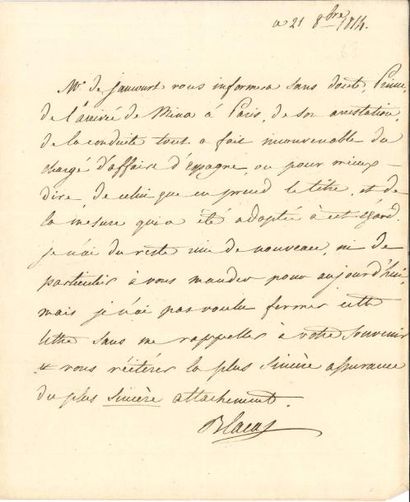 ce 21 8bre 1814.
Mr. de jaucourt vous informera sans doute, Prince,
de l'arrivée de Mina à Paris, de son arrestation,
de la conduite tout a fait inconvenable du
chargé d'affaire d'espagne, ou pour mieux
dire, de celui qui en prend le titre, et de
la mesure qui a été adoptée à cet égard.
je n'ai du reste rien de nouveau, ni de
particulier à vous mander pour aujourd'hui,
mais je n'ai pas voulu fermer cette
lettre sans me rappeller à votre souvenir
et vous réitérer la plus sincère assurance
du plus sincère attachement.
Blacas